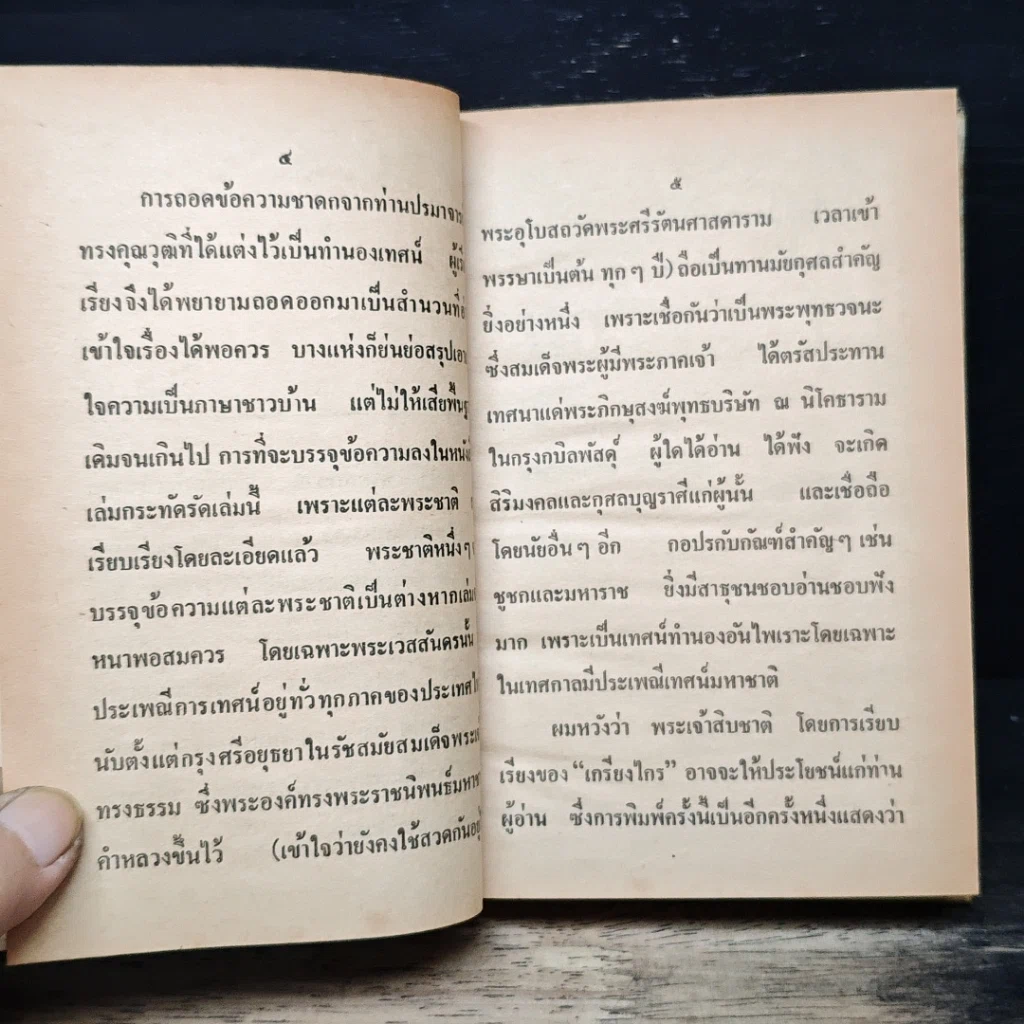 ๔
การถอดข้อความชาดกจากท่านปรมาจาร
ทรงคุณวุฒิที่ได้แต่งไว้เป็นทำนองเทศน์
เรียงจึงได้พยายามถอดออกมาเป็นสำนวนที่
เข้าใจเรื่องได้พอควร บางแห่งก็ย่นย่อสรุปเอา
ใจความเป็นภาษาชาวบ้าน แต่ไม่ให้เสียพื้น
เดิมจนเกินไป การที่จะบรรจุข้อความลงในหนัง
เล่มกระทัดรัดเล่มนี้ เพราะแต่ละพระชาติ
เรียบเรียงโดยละเอียดแล้ว พระชาติหนึ่งๆ
บรรจุข้อความแต่ละพระชาติเป็นต่างหากเล่ม
หนาพอสมควร โดยเฉพาะพระเวสสันดรนั้น
ประเพณีการเทศน์อยู่ทั่วทุกภาคของประเทศ
นับตั้งแต่กรุงศรีอยุธยาในรัชสมัยสมเด็จพระ
ทรงธรรม ซึ่งพระองค์ทรงพระราชนิพนธ์มหาช
คำหลวงขึ้นไว้ (เข้าใจว่ายังคงใช้สวดกันอยู่
๕
พระอุโบสถวัดพระศรีรัตนศาสดาราม เวลาเข้า
พรรษาเป็นต้น ทุกๆ ปี) ถือเป็นทานมัยกุศลสำคัญ
ยิ่งอย่างหนึ่ง เพราะเชื่อกันว่าเป็นพระพุทธวจนะ
ซึ่งสมเด็จพระผู้มีพระภาคเจ้า ได้ตรัสประทาน
เทศนาแด่พระภิกษุสงฆ์พุทธบริษัท ณ นิโคธาราม
ในกรุงกบิลพัสดุ์ ผู้ใดได้อ่าน ได้ฟัง จะเกิด
สิริมงคลและกุศลบุญราศีแก่ผู้นั้น และเชื่อถือ
โดยนัยอื่นๆ อีก กอปรกับกัณฑ์สำคัญๆ เช่น
ชูชกและมหาราช ยิ่งมีสาธุชนชอบอ่านชอบฟัง
มาก เพราะเป็นเทศน์ทำนองอันไพเราะโดยเฉพาะ
ในเทศกาลมีประเพณีเทศน์มหาชาติ
ผมหวังว่า พระเจ้าสิบชาติ โดยการเรียบ
เรียงของ “เกรียงไกร” อาจจะให้ประโยชน์แก่ท่าน
ผู้อ่าน ซึ่งการพิมพ์ครั้งนี้เป็นอีกครั้งหนึ่งแสดงว่า